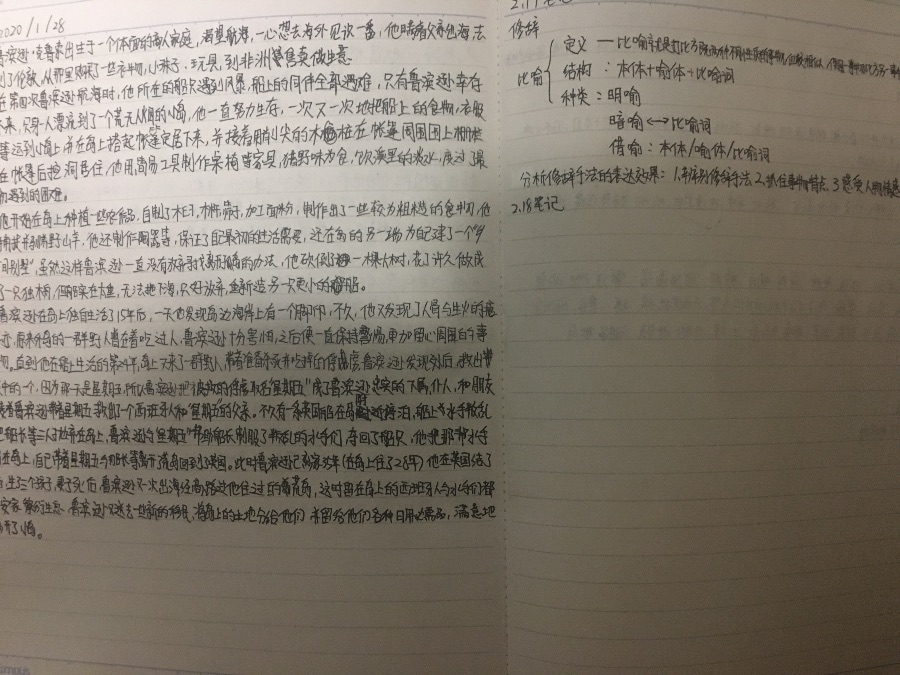 2020/1/28
鲁滨逊·克鲁索出生于一个体面的商人家庭，渴望航海，一心想去海外见识一番，他瞒着父亲出海去
到了伦敦，从那里购买了一些衣物，小珠子，玩具，到非洲做生意
在第四次鲁滨逊航海时，他所在的船只遇到风暴，船上的同伴全部遇难，只有鲁滨逊幸存
下来，只身一人漂流到了个荒无人烟的小岛，他一直努力生存，一次又一次地把船上的食物，衣服
等运到小岛上，并在岛上搭起帐篷定居下来，并接着用削尖的木桩在帐篷周围围上栅栏
在帐篷后挖洞居住，他用简易工具制作桌椅等家具，猎野味为食，饮溪里的淡水，度过了最
初遇到的困难。
他开始在岛上种植一些，自制了木臼，木杵，筛子，加工面粉，制作出了一些较为粗糙的食物，他
野山羊，他还制作陶器等，保证了自己最初的生活需要，还在岛的另一端为自己建了一个"乡
间别墅"，虽然这样鲁滨逊一直没有放弃寻找离开孤岛的办法，他砍倒了一棵大树，花了许久做成
了一只独木舟，但船实在太重，无法拖下海，只好放弃，重新造另一只更小的船。
鲁滨逊在岛上独自生活了15年后，一天他发现岛边海滩上有一个脚印，不久，他又发现了人骨与生火的痕
迹，原来外岛的一群野人曾在着吃过人，鲁滨逊十分害怕，之后便一直保持警惕，更加留心周围的事
物。直到他在岛上生活的第24年，岛上又来了一群野人，带着准备杀死并吃掉的俘虏，鲁滨逊发现到后，救出
其中的一个，因为那一天是星期五，所以鲁滨逊把被救的俘虏取名"星期五"成了鲁滨逊忠实的下属，仆人，和朋友
接着鲁滨逊带着星期五救出了一个西班牙人和"星期五"的父亲。不久有一条英国船在岛附近停泊，船上水手叛乱
把船长等三人抛弃在岛上，鲁滨逊与"星期五"帮助船长制服了叛乱的水手们，夺回了船只，他把那帮水手
留在岛上，自己带着星期五与船长等离开荒岛回到了英国。此时鲁滨逊已离家35年（在岛上住了28年）他在英国结了
婚，生三个孩子，妻子死后，鲁滨逊又一次出海经商，路过他住过的荒岛，这时留在岛上的西班牙人与水手们都
安家繁衍生息 鲁滨逊又送去一些新的移民，将岛上的土地分给他们 并留给他们各种日用必需品，满意地
离开了小岛。
2.17笔记
修辞
比喻
定义 — 比喻就是打比方
结构：本体+喻体+比喻词
种类：明喻
暗喻↔比喻词
借喻：本体/喻体/比喻词
分析修辞手法的表达效果：1.判别修辞手法 2.抓住事物特点 3.感受人物情感
2.18笔记